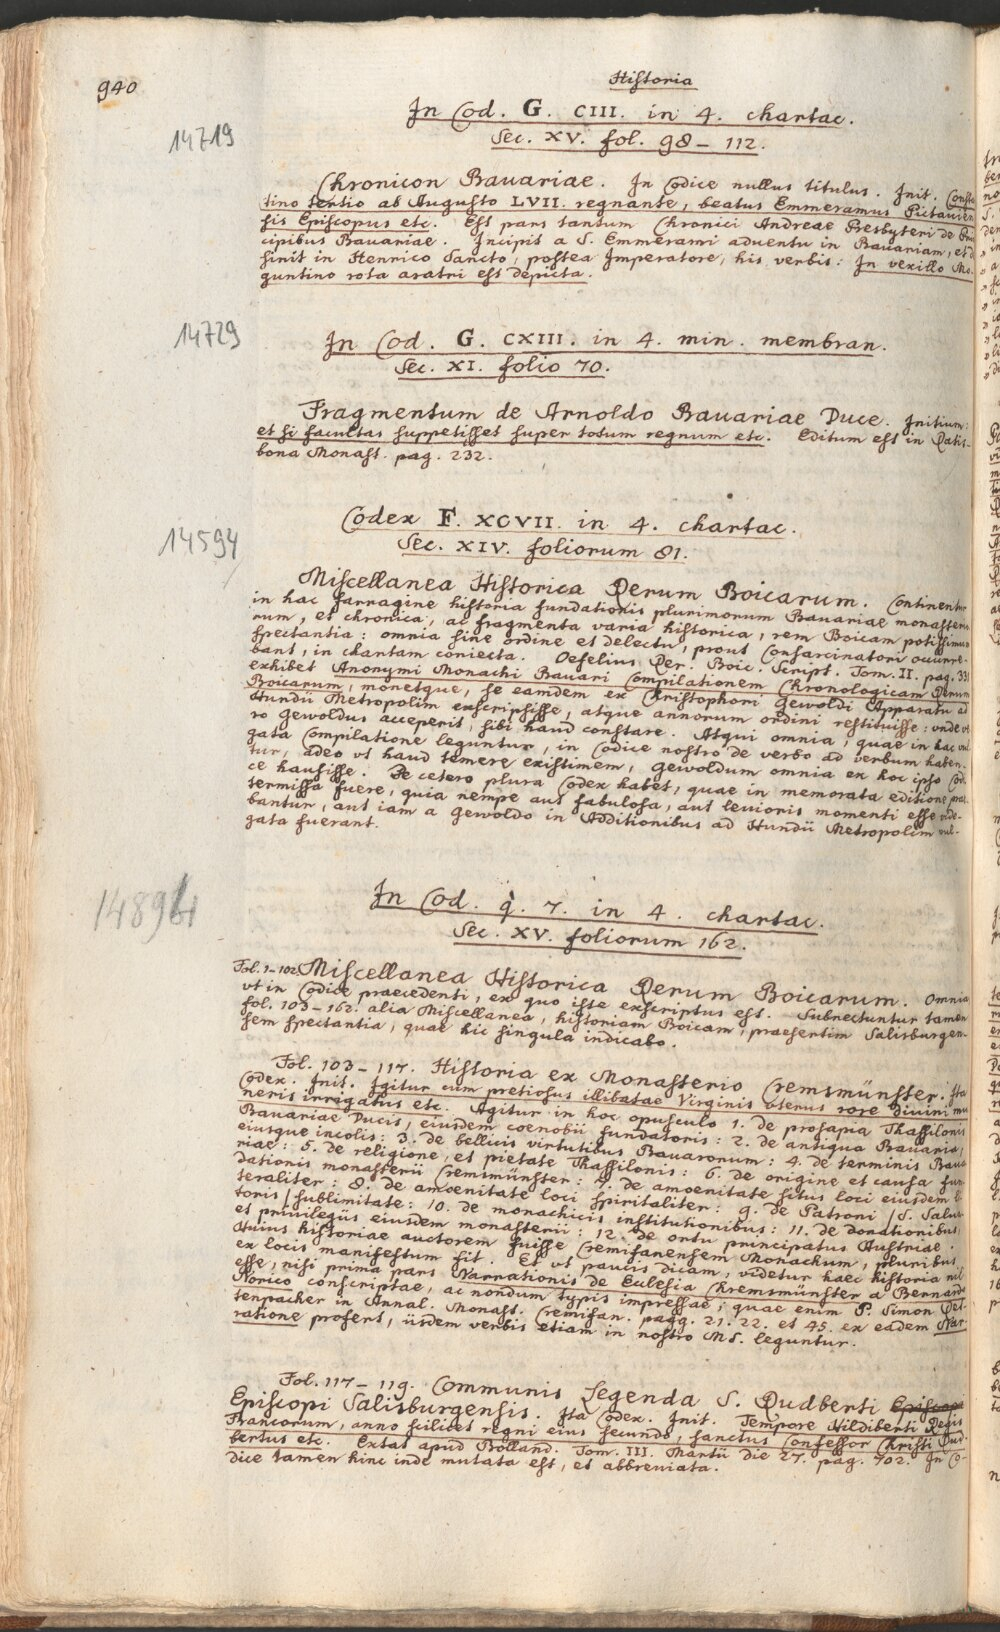 940
Historia
In Cod. G. CIII. in 4. chartac.
14719
Sec. XV. fol. 98 – 112.
Chronicon Bauariae. In Codice nullus titulus. Init. Consta
tino tertio ab Augusto LVII. regnante, beatus Emmeramus Pictauien
sis Episcopus etc. Est pars tantum Chronici Andreae Presbyteri de Prin
cipibus Bauariae. Incipit a S. Emmerami aduentu in Bauariam, et d
sinit in Henrico Sancto, postea Imperatore, his verbis: In vexillo Mo.
guntino rota aratri est depicta.
14729
In Cod. G. CXIII. in 4. min. membran.
Sec. XI. folio 70.
Fragmentum de Arnoldo Bauariae Duce. Initium:
et si facultas suppetisset super totum regnum etc. Editum est in Ratis-
bona Monast. pag. 232.
Codex F. XCVII. in 4. chartac.
14594
Sec. XIV. foliorum 81.
Miscellanea Historica Rerum Boicarum. Continentur
in hac farragine historia fundationis plurimorum Bauariae monasterio
rum, et chronica, ac fragmenta varia historica, rem Boicam potissimum
spectantia: omnia sine ordine et delectu, prout Consarcinatori occurre-
bant, in chartam coniecta. Oefelius Rer. Boic. Script. Tom. II. pag. 331
exhibet Anonymi Monachi Bauari Compilationem Chronologicam Rerum
Boicarum, monetque, se eamdem ex Christophori Gewoldi Apparatu ad
Hundii Metropolim exscripsisse, atque annorum ordini restituisse: vnde ve
ro Gewoldus acceperit, sibi haud constare. Atqui omnia, quae in hac vul
gata Compilatione leguntur, in Codice nostro de verbo ad verbum haben-
tur, adeo vt haud temere existimem, Gewoldum omnia ex hoc ipso Cod.
ce hausisse. De cetero plura Codex habet, quae in memorata editione prae
termissa fuere, quia nempe aut fabulosa, aut leuioris momenti esse vide-
bantur, aut iam a Gewoldo in Additionibus ad Hundii Metropolim vul-
gata fuerant.
In Cod. q. 7. in 4. chartac.
Sec. XV. foliorum 162.
Fol. 1–102. Miscellanea Historica Rerum Boicarum. Omnia
vt in Codice praecedenti, ex quo iste exscriptus est. Subnectuntur tamen
fol. 103–162. alia Miscellanea, historiam Boicam, praesertim Salisburgen-
sem spectantia, quae hic singula indicabo.
Fol. 103–117. Historia ex Monasterio Cremsmünster. Ita
Codex. Init. Igitur cum pretiosus illibatae Virginis vterus rore diuini mu
neris irrigatus etc. Agitur in hoc opusculo 1. de prosapia Thassilonis
Bauariae Ducis, eiusdem coenobii fundatoris: 2. de antiqua Bauaria,
eiusque incolis: 3. de bellicis virtutibus Bauaronum: 4. de terminis Baua
riae: 5. de religione, et pietate Thassilonis: 6. de origine et causa fun
dationis monasterii Cremsmünster: 7. de amoenitate situs loci eiusdem li
teraliter: 8. de amoenitate loci spiritaliter: 9. de Patroni (S. Salua
toris) sublimitate: 10. de monachicis institutionibus: 11. de donationibus,
et priuilegiis eiusdem monasterii: 12. de ortu principatus Austriae.
Huius historiae auctorem fuisse Cremifanensem Monachum, pluribus
ex locis manifestum fit. Et vt paucis dicam, videtur haec historia nil
esse, nisi prima pars Narrationis de Eclesia Chremsmünster a Bernardo
Norico conscriptae, ac nondum typis impressae; quae enim P. Simon Ret-
tenpacher in Annal. Monast. Cremifan. pagg. 21. 22. et 45. ex eadem Nar-
ratione profert, iisdem verbis etiam in nostro MS. leguntur.
Fol. 117–119. Communis Legenda S. Rudberti Episcopi
Episcopi Salisburgensis. Ita Codex. Init. Tempore Hildiberti Regis
Francorum, anno scilicet regni eius secundo, sanctus Confessor Christi Rud-
bertus etc. Extat apud Bolland. Tom. III. Martii die 27. pag. 702. In Co-
dice tamen hinc inde mutata est, et abbreuiata.